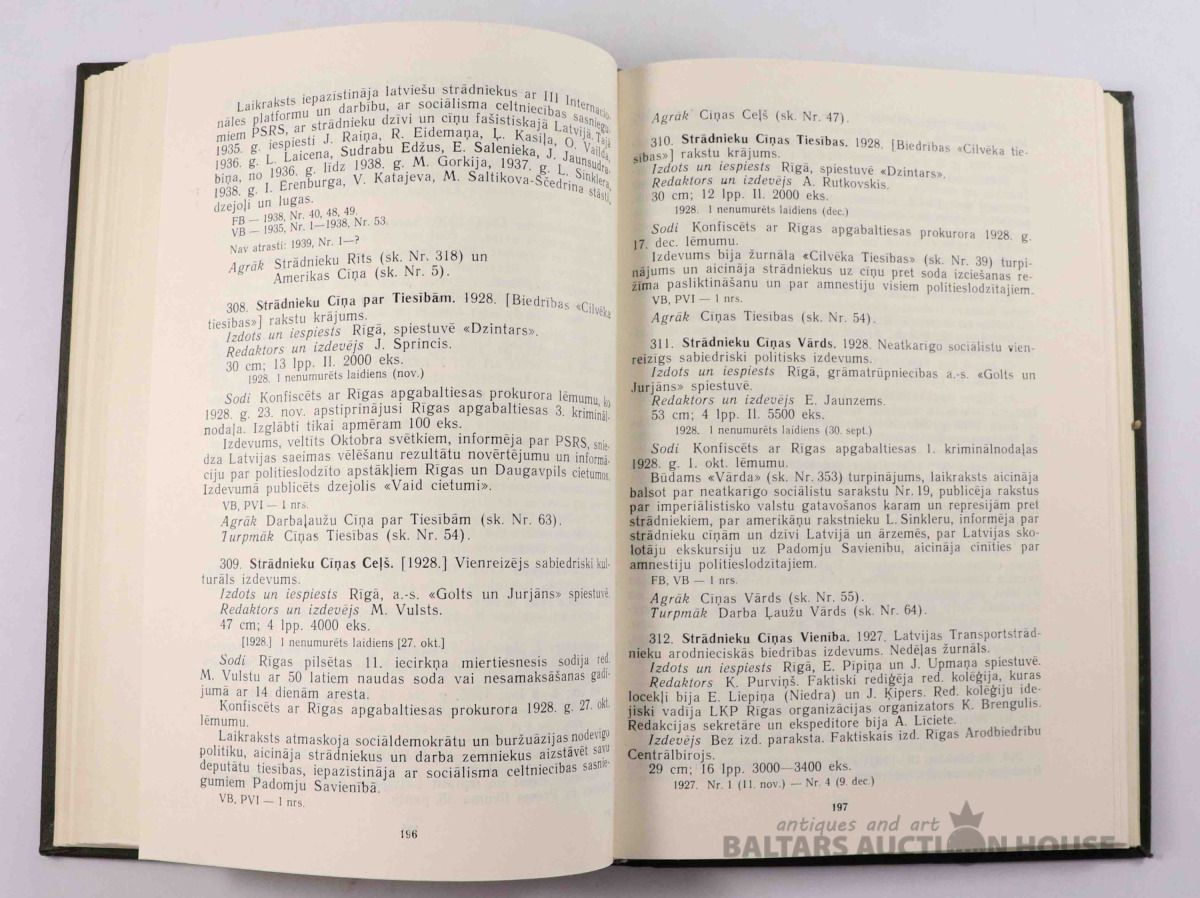 Laikraksts iepazīstināja latviešu strādniekus ar III Internacio-
nāles platformu un darbību, ar sociālisma celtniecības sasniegu-
miem PSRS, ar strādnieku dzīvi un cīņu fašistiskajā Latvijā. Tajā
1935. g. iespiesti J. Raiņa, R. Eidemaņa, Ļ. Kasiļa, O. Vailda,
1936. g. L. Laicena, Sudrabu Edžus, E. Salenieka, J. Jaunsudra-
biņa, no 1936. g. līdz 1938. g. M. Gorkija, 1937. g. L. Sinklera,
1938. g. I. Ērenburga, V. Katajeva, M. Saltikova-Ščedrina stāsti,
dzejoļi un lugas.
FB — 1938, Nr. 40, 48, 49.
VB — 1935, Nr. 1—1938, Nr. 53.
Nav atrasti: 1939, Nr. 1—?
Agrāk Strādnieku Rīts (sk. Nr. 318) un
Amerikas Cīņa (sk. Nr. 5).
308. Strādnieku Cīņa par Tiesībām. 1928. [Biedrības «Cilvēka
tiesības»] rakstu krājums.
Izdots un iespiests Rīgā, spiestuvē «Dzintars».
Redaktors un izdevējs J. Sprincis.
30 cm; 13 lpp. Il. 2000 eks.
1928. 1 nenumurēts laidiens (nov.)
Sodi Konfiscēts ar Rīgas apgabaltiesas prokurora lēmumu, ko
1928. g. 23. nov. apstiprinājusi Rīgas apgabaltiesas 3. krimināl-
nodaļa. Izglābti tikai apmēram 100 eks.
Izdevums, veltīts Oktobra svētkiem, informēja par PSRS, snie-
dza Latvijas saeimas vēlēšanu rezultātu novērtējumu un informā-
ciju par politieslodzīto apstākļiem Rīgas un Daugavpils cietumos.
Izdevumā publicēts dzejolis «Vaid cietumi».
VB, PVI — 1 nrs.
Agrāk Darbaļaužu Cīņa par Tiesībām (sk. Nr. 63).
Turpmāk Cīņas Tiesības (sk. Nr. 54).
309. Strādnieku Cīņas Ceļš. [1928.] Vienreizējs sabiedriski kul-
turāls izdevums.
Izdots un iespiests Rīgā, a.-s. «Golts un Jurjāns» spiestuvē.
Redaktors un izdevējs M. Vulsts.
47 cm; 4 lpp. 4000 eks.
[1928.] 1 nenumurēts laidiens [27. okt.]
Sodi Rīgas pilsētas 11. iecirkņa miertiesnesis sodīja red.
M. Vulstu ar 50 latiem naudas soda vai nesamaksāšanas gadī-
jumā ar 14 dienām aresta.
Konfiscēts ar Rīgas apgabaltiesas prokurora 1928. g. 27. okt.
lēmumu.
Laikraksts atmaskoja sociāldemokrātu un buržuāzijas nodevīgo
politiku, aicināja strādniekus un darba zemniekus aizstāvēt savu
deputātu tiesības, iepazīstināja ar sociālisma celtniecības sasnie-
gumiem Padomju Savienībā.
VB, PVI — 1 nrs.
196
Agrāk Cīņas Ceļš (sk. Nr. 47).
310. Strādnieku Cīņas Tiesības. 1928. [Biedrības «Cilvēka tie-
sības»] rakstu krājums.
Izdots un iespiests Rīgā, spiestuvē «Dzintars».
Redaktors un izdevējs A. Rutkovskis.
30 cm; 12 lpp. Il. 2000 eks.
1928. 1 nenumurēts laidiens (dec.)
Sodi Konfiscēts ar Rīgas apgabaltiesas prokurora 1928. g.
17. dec. lēmumu.
Izdevums bija žurnāla «Cilvēka Tiesības» (sk. Nr. 39) turpi-
nājums un aicināja strādniekus uz cīņu pret soda izciešanas re-
žīma pasliktināšanu un par amnestiju visiem politieslodzītajiem.
VB, PVI — 1 nrs.
Agrāk Cīņas Tiesības (sk. Nr. 54).
311. Strādnieku Cīņas Vārds. 1928. Neatkarīgo sociālistu vien-
reizīgs sabiedriski politisks izdevums.
Izdots un iespiests Rīgā, grāmatrūpniecības a.-s. «Golts un
Jurjāns» spiestuvē.
Redaktors un izdevējs E. Jaunzems.
53 cm; 4 lpp. Il. 5500 eks.
1928. 1 nenumurēts laidiens (30. sept.)
Sodi Konfiscēts ar Rīgas apgabaltiesas 1. kriminālnodaļas
1928. g. 1. okt. lēmumu.
Būdams «Vārda» (sk. Nr. 353) turpinājums, laikraksts aicināja
balsot par neatkarīgo sociālistu sarakstu Nr. 19, publicēja rakstus
par imperiālistisko valstu gatavošanos karam un represijām pret
strādniekiem, par amerikāņu rakstnieku L. Sinkleru, informēja par
strādnieku cīņām un dzīvi Latvijā un ārzemēs, par Latvijas sko-
lotāju ekskursiju uz Padomju Savienību, aicināja cīnīties par
amnestiju politieslodzītajiem.
FB, VB — 1 nrs.
Agrāk Cīņas Vārds (sk. Nr. 55).
Turpmāk Darba Ļaužu Vārds (sk. Nr. 64).
312. Strādnieku Cīņas Vienība. 1927. Latvijas Transportstrād-
nieku arodnieciskās biedrības izdevums. Nedēļas žurnāls.
Izdots un iespiests Rīgā, E. Pīpiņa un J. Upmaņa spiestuvē.
Redaktors K. Purviņš. Faktiski rediģēja red. kolēģija, kuras
locekļi bija E. Liepiņa (Niedra) un J. Ķipers. Red. kolēģiju ide-
jiski vadīja LKP Rīgas organizācijas organizators K. Brengulis.
Redakcijas sekretāre un ekspeditore bija A. Līciete.
Izdevējs Bez izd. paraksta. Faktiskais izd. Rīgas Arodbiedrību
Centrālbirojs.
29 cm; 16 lpp. 3000—3400 eks.
1927. Nr. 1 (11. nov.) — Nr. 4 (9. dec.)
197
antiques and art
BALTARS AUCTION HOUSE